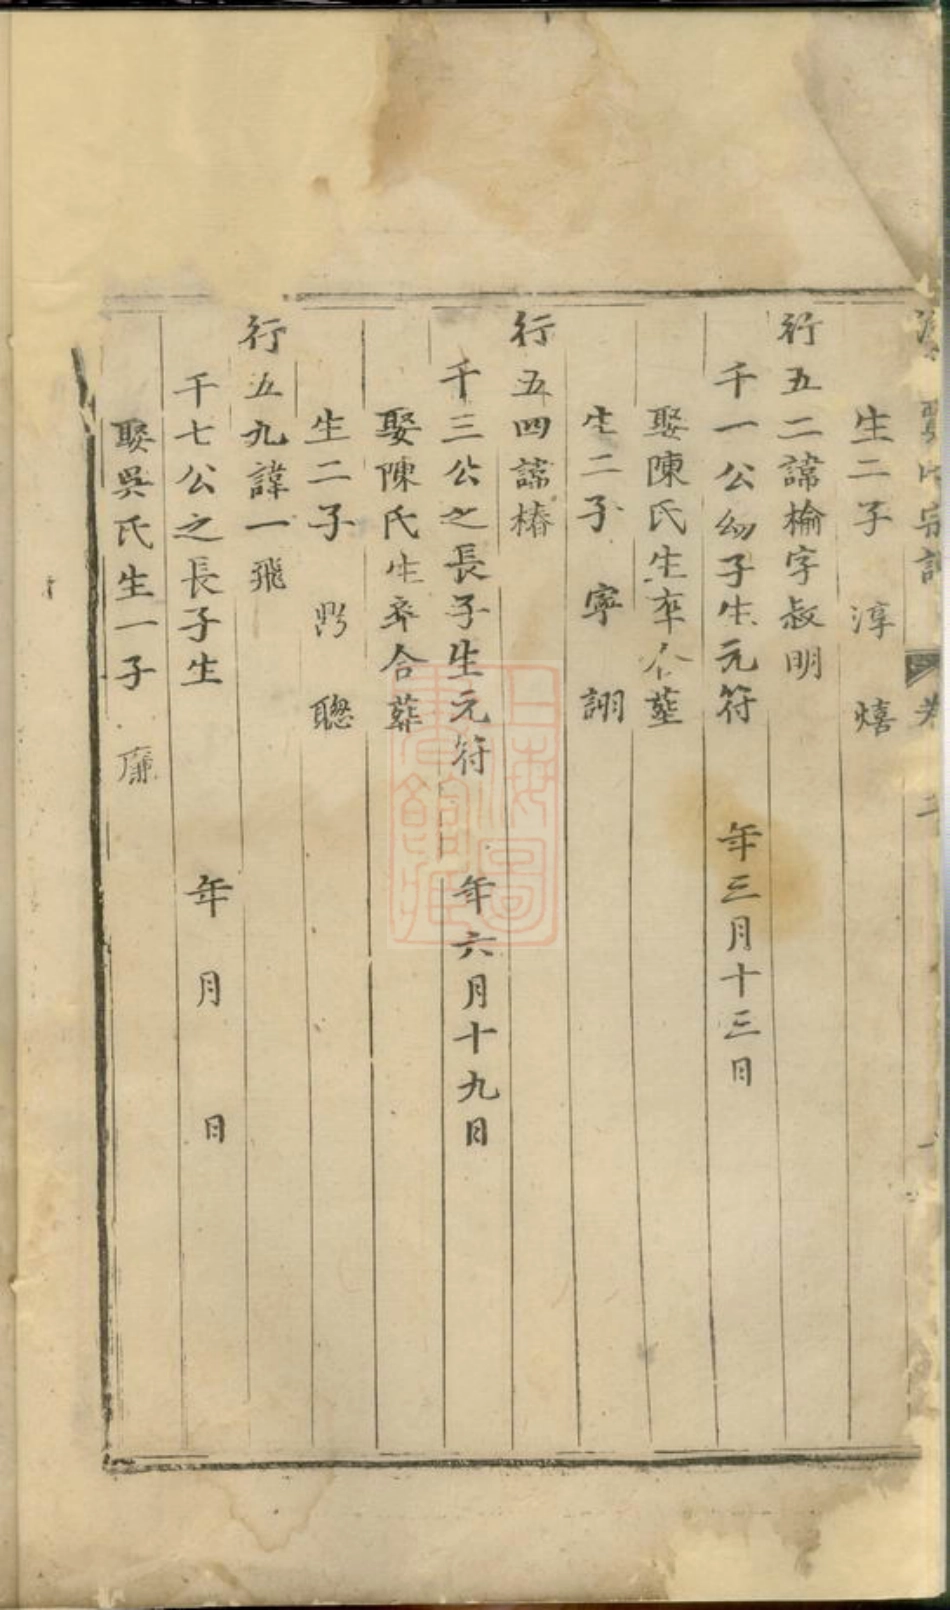 氏宗譜 卷二
生二子 淳 熺
行五二諱楡字叔明
千一公幼子生元符 年三月十三日
娶陳氏生卒合葬
生二子 寧 詡
行五四諱椿
千三公之長子生元符 年六月十九日
娶陳氏生卒合葬
生二子 聰
行五九諱一飛
千七公之長子生 年 月 日
娶吳氏生一子 廉
上海圖書館藏